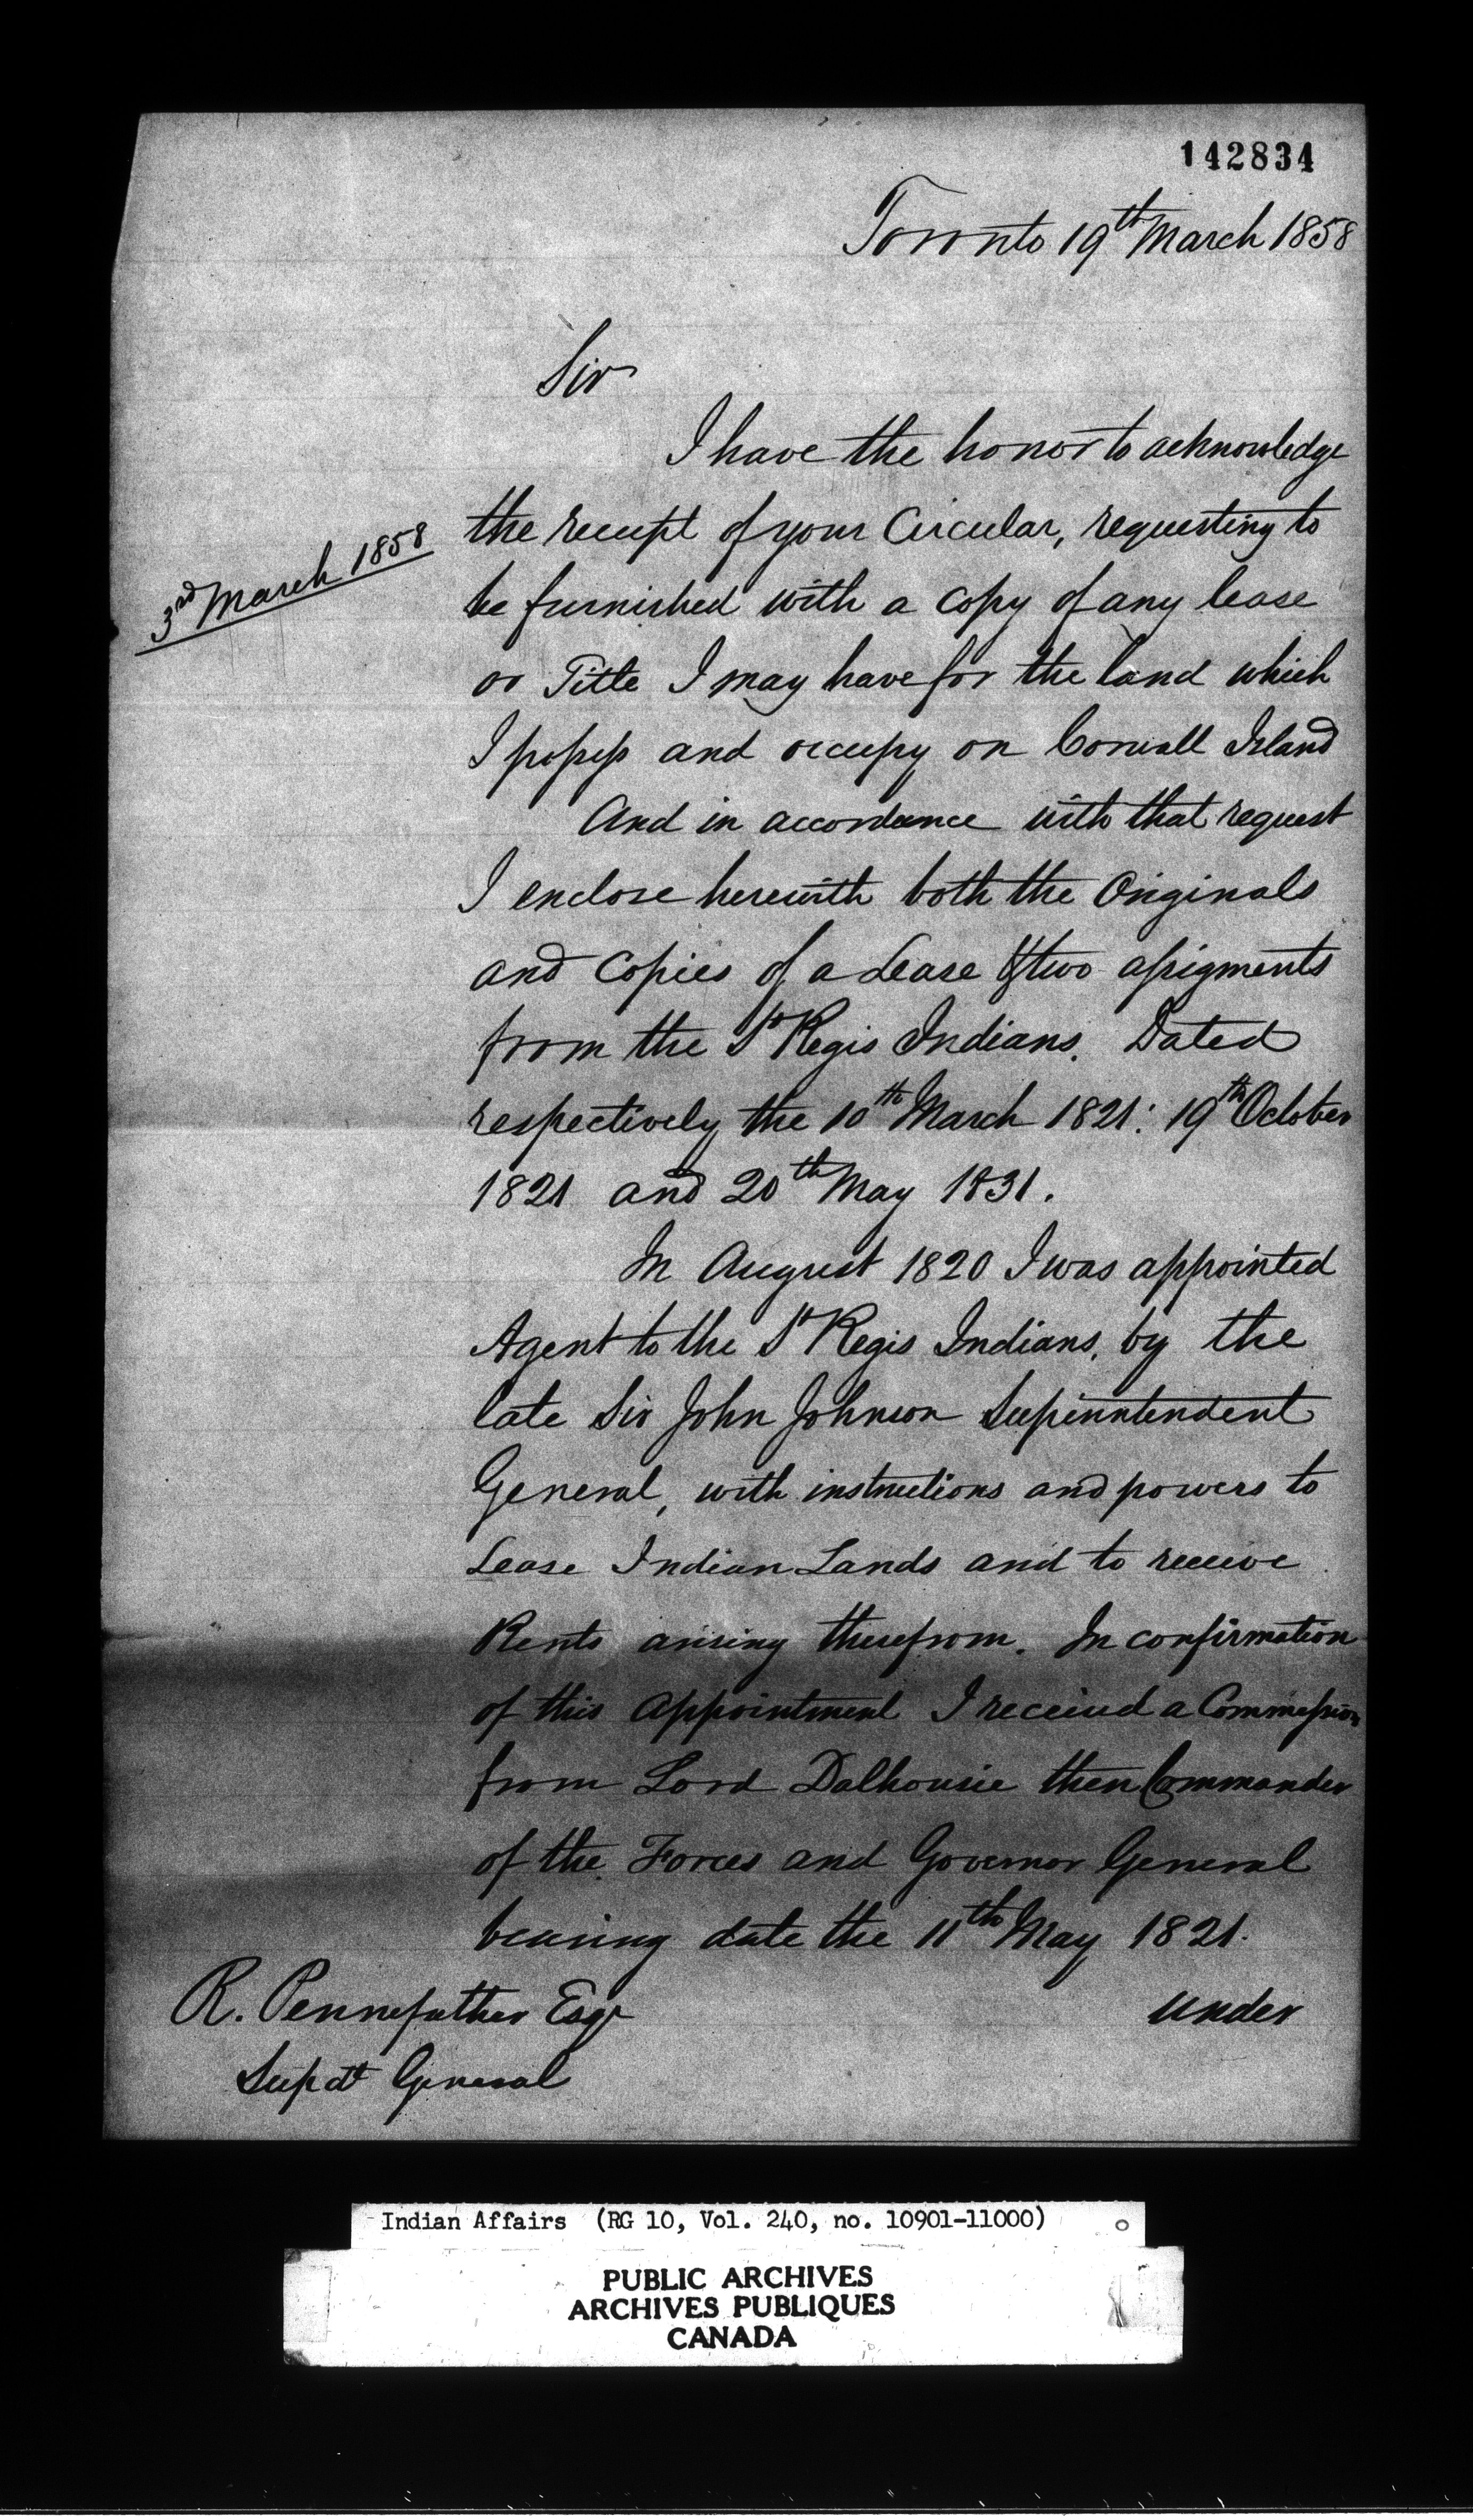 142834
Toronto 19th March 1858
Sir
I have the honor to acknowledge
the receipt of your Circular, requesting to
3rd March 1858
be furnished with a copy of any lease
or Title I may have for the land which
I possess and occupy on Cornwall Island
And in accordance with that request
I enclose herewith both the Originals
and Copies of a Lease & two assigments
from the St Regis Indians. Dated
respectively the 10th March 1821: 19th October
1821 and 20th May 1831.
In August 1820 I was appointed
Agent to the St Regis Indians, by the
late Sir John Johnson Supinntendent
General, with instructions and powers to
Lease Indian Lands and to receive
Rents arising therefrom. In confirmation
of this Appointment I received a Commission
from Lord Dalhousie then Commander
of the Forces and Governor General
bearing date the 11th May 1821.
under
R. Pennefather Esqr
Supdt General
Indian Affairs (RG 10, Vol. 240, no. 10901-11000)
PUBLIC ARCHIVES
ARCHIVES PUBLIQUES
CANADA